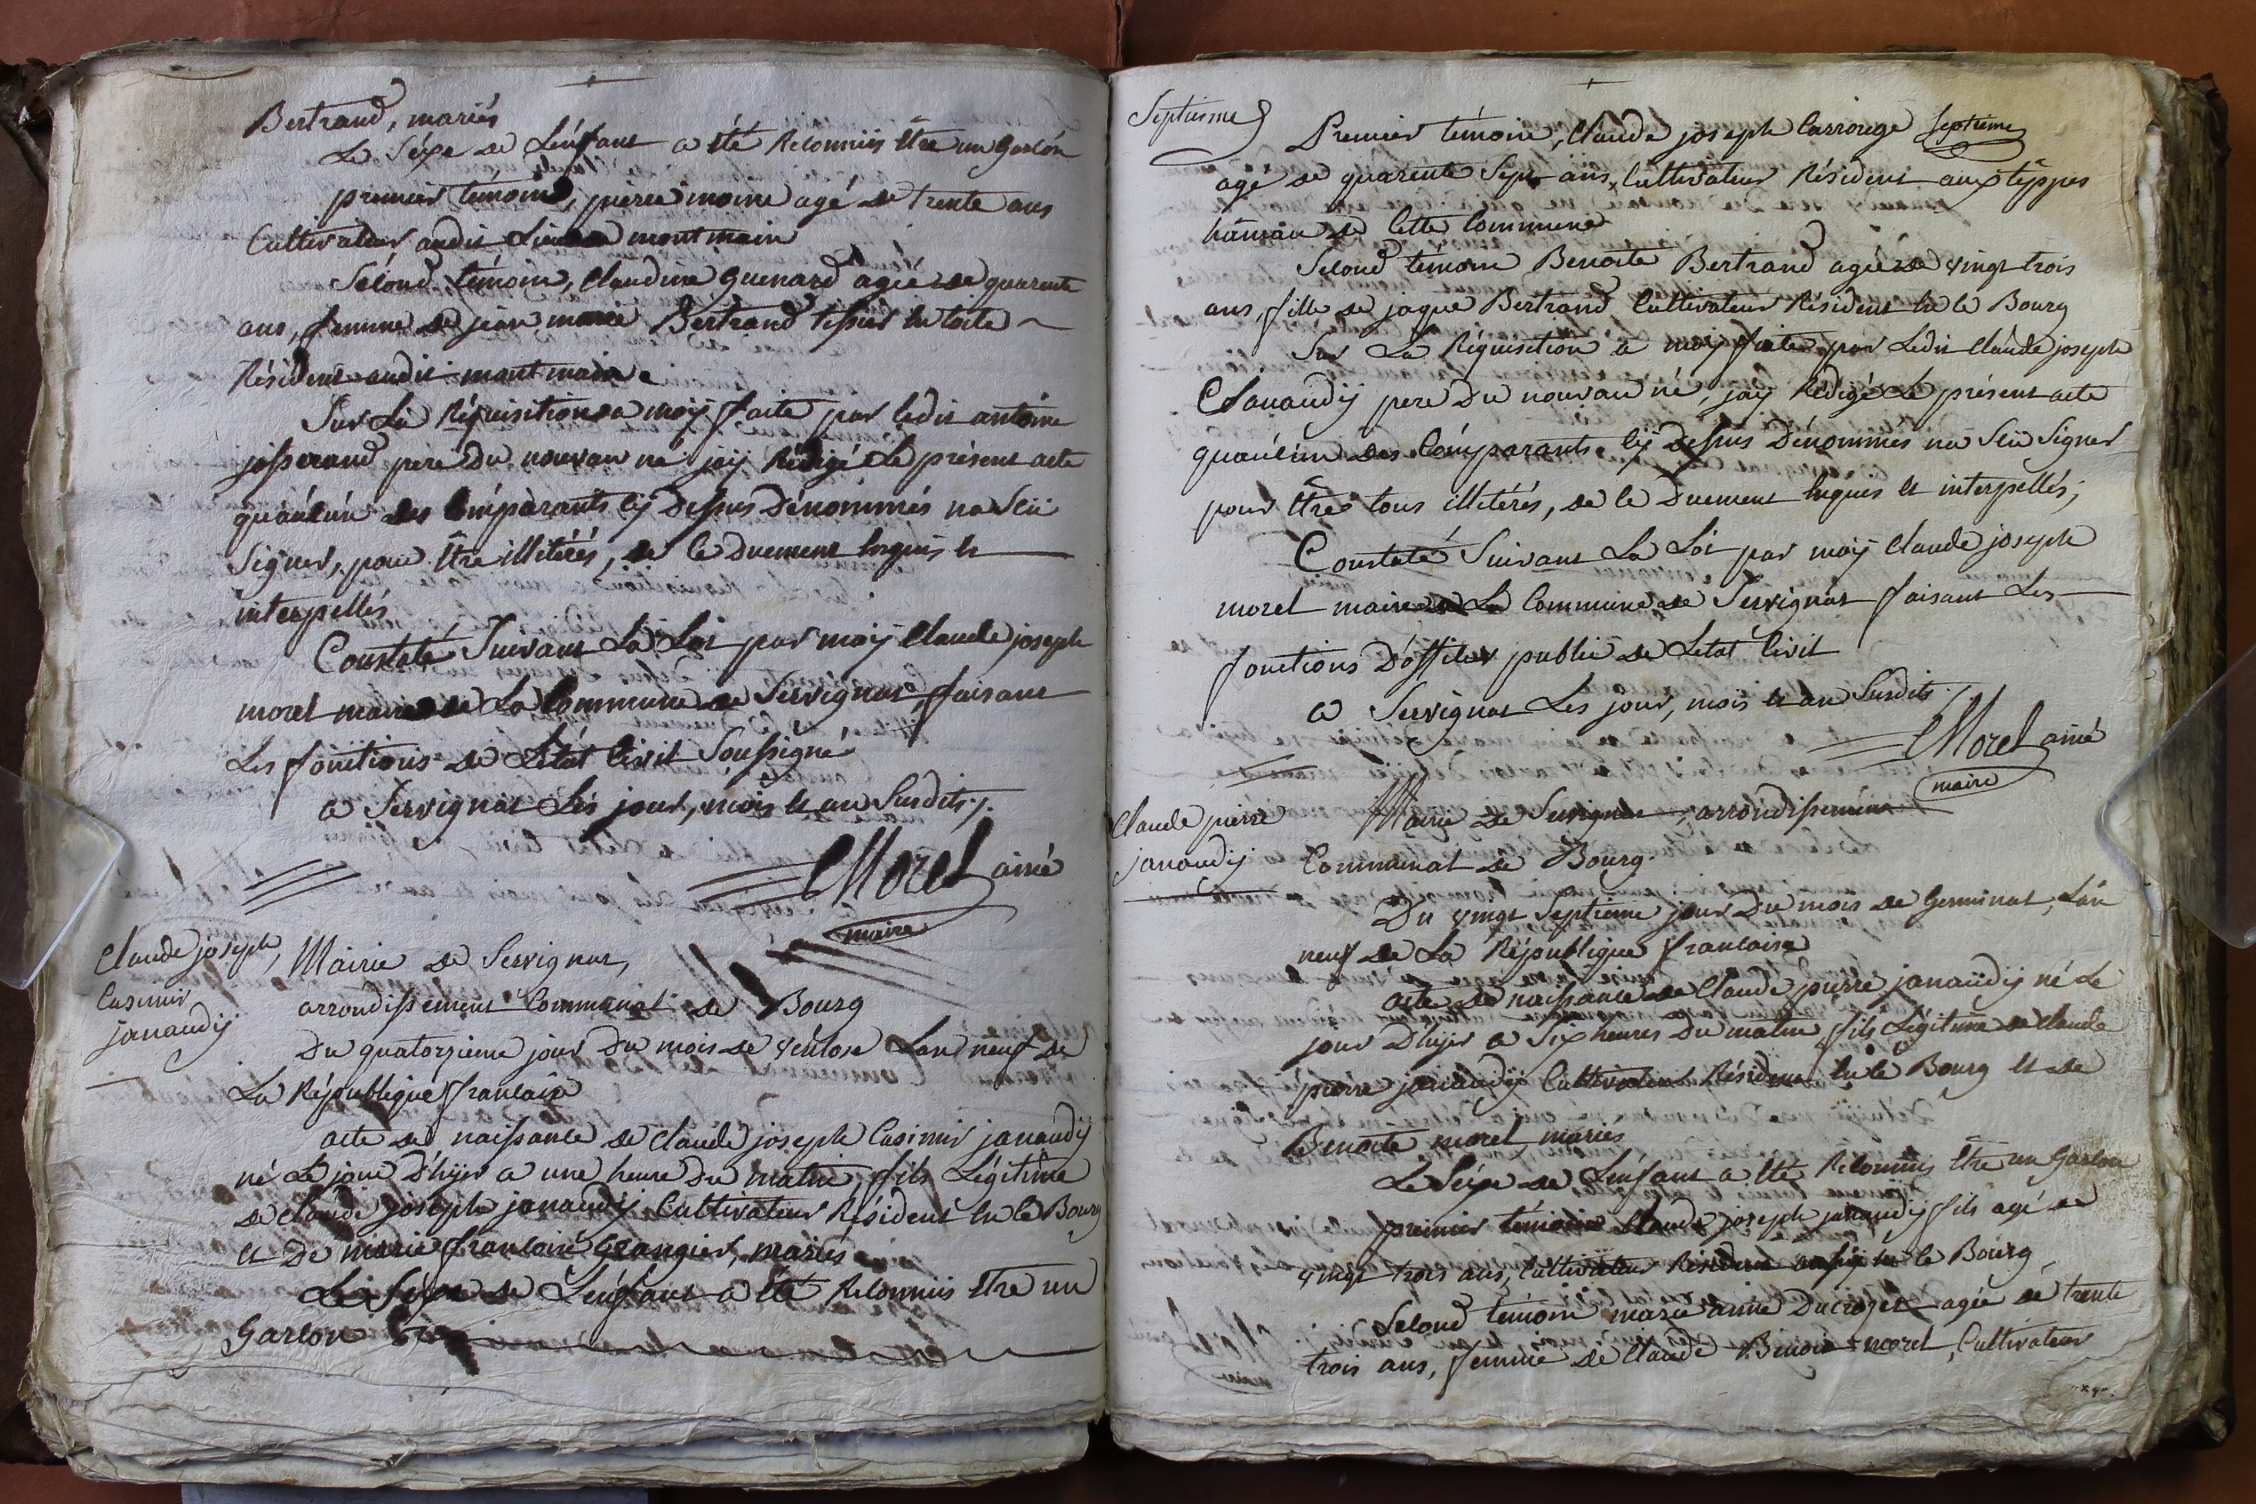 Bertrand, mariés
Le Séxe de L'énfant a été Reconnus être un Garcón
premier témoin, pierre moine agé de trente ans
Cultivateur audit Lieu de montmain
Sécond témoin, Claudine Guenard agéé de quarente
ans, femme de jean marie Bertrand tissier en toile
Résident audit montmain
Sur La Réquisition a moij faite par ledit antoine
josserand pere Du nouvau né jaij Rédigé Le présent acte
quaúcún des Cómparants cij Dessus Dénommés na Scü
Signer, pour être illitérés, de ce Duement Enquis et
interpellés
Constaté Suivant La Loi par moij Claude joseph
morel maire de La Commune de Servignat, faisant
Les fonctions de L'état Civil Soussigné
a Servignat Les jour, mois et an Susdits ./.
CMorel ainé
maire
Claude joseph,
Casimir
janaudij
Mairie de Servignat,
arrondissement Communal de Bourg
Du quatorzieme jour Du mois de ventose Lan neuf de
La République francaise
acte de naissance de Claude joseph Casimir janaudij
né Le jour D'hijer a une heure Du matin, fils Légitime
de Claude joseph janaudij Cultivateur Résident en ce Bourg
et De marie francoise Grangier, mariés
Le Séxe de L'énfant a été Reconnus être un
Garcon
Septiesme
Premier témoin, Claude joseph Carronge Septieme
agé de quarente Sept ans, Cultivateur Résident aux tëppes
hámau de Cette Commune
Sécond témoin Benoite Bertrand agéé de vingt trois
ans, fille de jaque Bertrand Cultivateur Résident en ce Bourg
Sur La Réquisition a moij faite par Ledit Claude joseph
Janaudij pere Du nouvau né, jaij Rédigé Le présent acte
quaúcún des Cómparants cij Dessus Dénommés na Scü Signer
pour être tous illitérés, de ce Duement Enquis et interpellés;
Constaté Suivant La Loi par moij Claude joseph
morel maire de La Commune de Servignat faisant Les
fonctions D'officier public de Létat Civil
a Servignat Les jour, mois et an Susdits ./.
CMorel ainé
maire
Claude pierre
janaudij
Mairie de Servignat, arrondissement
Communal de Bourg.
Du vingt Septieme jour Du mois de Germinal, L'an
neuf de La République francaise
acte de naissance de Claude pierre janaüdij né Le
jour D'hijer a Six heures Du matin, fils Légitime de Claude
pierre janaudij Cultivateur Résident En cé Bourg et de
Benoite morel mariés
Le Séxe de L'énfant a été Reconnus être un Garcon
premier témoin Claude joseph janaudij fils agé de
vingt trois ans, Cultivateur Résident aussij en ce Bourg
Second témoin marie anne Ducroget agée de trente
trois ans, femme de Claude Benoit morel, Cultivateur